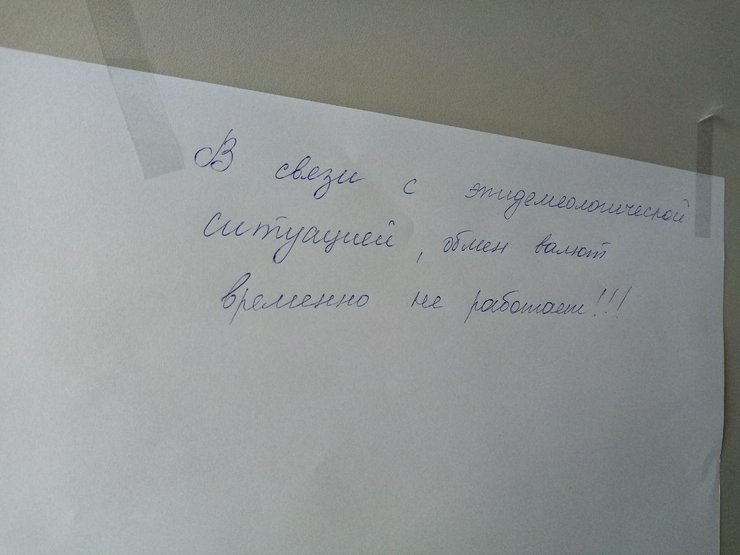 В связи с эпидемеологической
ситуацией, обмен валют
временно не работает!!!